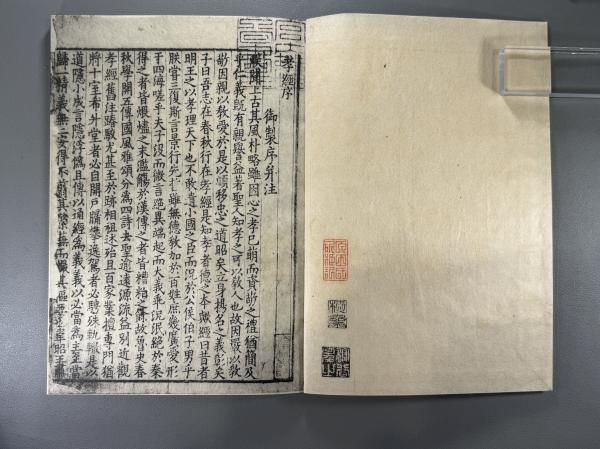 孝經序
御製序并注
朕聞上古其風朴略雖因心之孝已萌而資敬之禮猶簡及
乎仁義既有親譽益著聖人知孝之可以教人也故因嚴以教
敬因親以教愛於是以順移忠之道昭矣立身揚名之義彰矣
子曰吾志在春秋行在孝經是知孝者德之本歟經曰昔者
明王之以孝理天下也不敢遺小國之臣而況於公侯伯子男乎
朕嘗三復斯言景行先雖無德教加於百姓庶幾廣愛形
于四海嗟乎夫子沒而微言絕異端起而大義乖況泯絕於秦
得之者皆煨燼之末濫觴於漢傳之者皆糟粕之餘故魯史春
秋學開五傳國風雅頌分為四詩去聖逾遠源流益別近觀
孝經舊注踳駮尤甚至於跡相祖述殆且百家業擅專門猶
將十室希升堂者必自開戶牖攀逸駕者必騁殊軌轍是以
道隱小成言隱浮偽且傳以通經為義義以必當為主至當
歸一精義無二安得不翦其繁蕪而撮其韋昭王